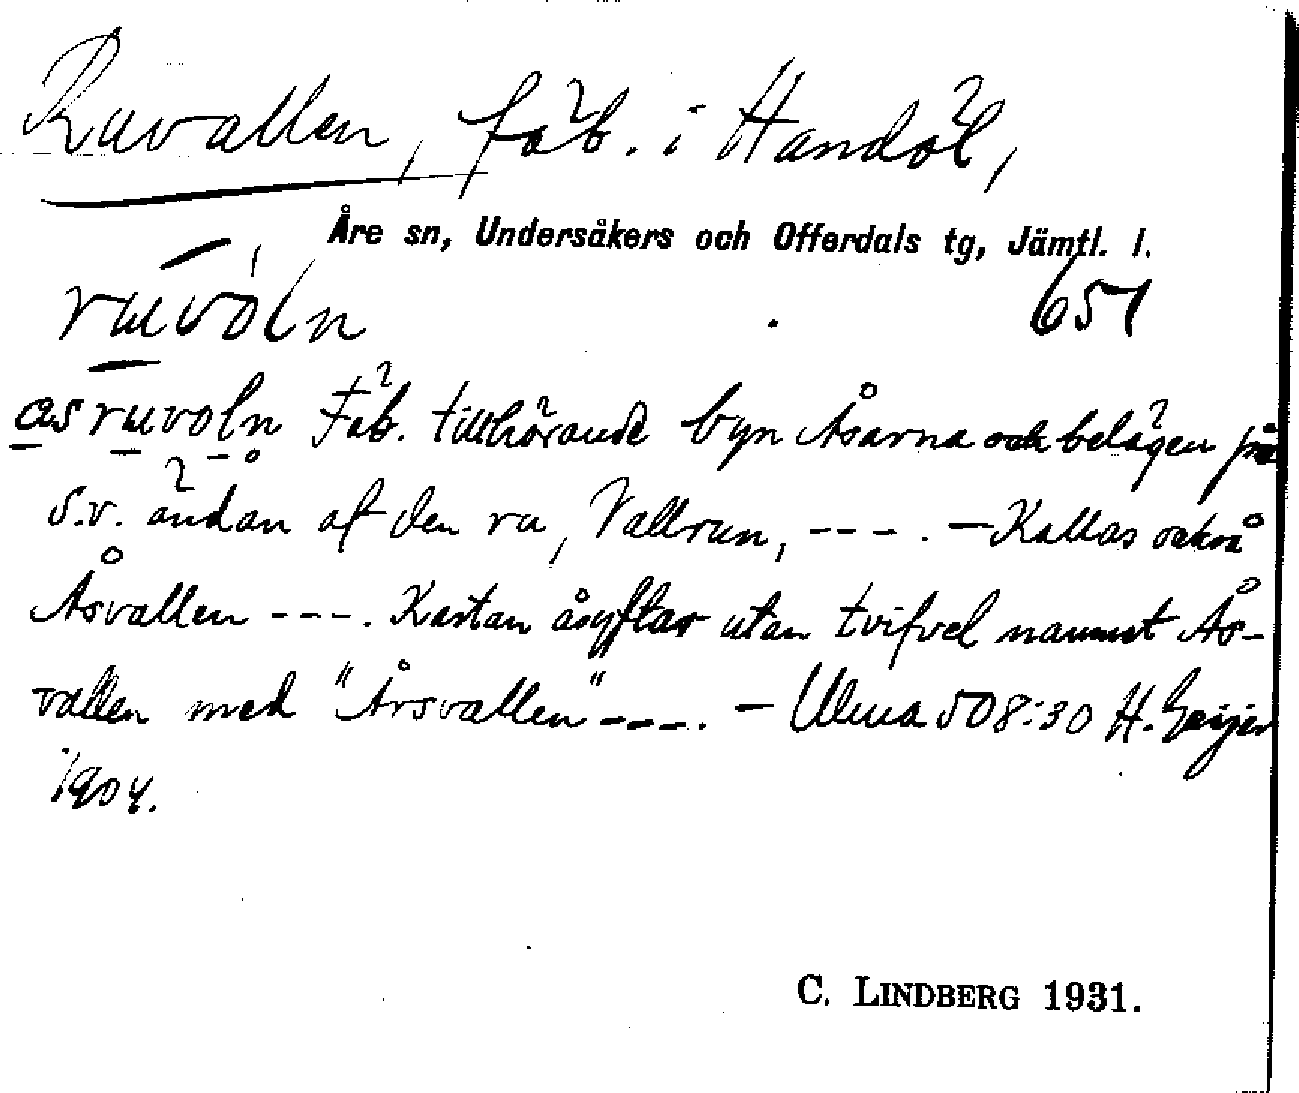 Ruvallen, fäb. i Handöl,
Åre sn, Undersåkers och Offerdals tg, Jämtl. l.
ruvóln 651
asruvoln Fäb. tillhörande byn Åsarna och belägen på
s.v. ändan af den ra, Vallrun, ---. – Kallas också
Åsvallen ---. Kartan åsyftar utan tvifvel namnet Ås-
vallen med "Årsvallen" ---. – Ulma 508:30 H. Geijer
1904.
C. LINDBERG 1931.